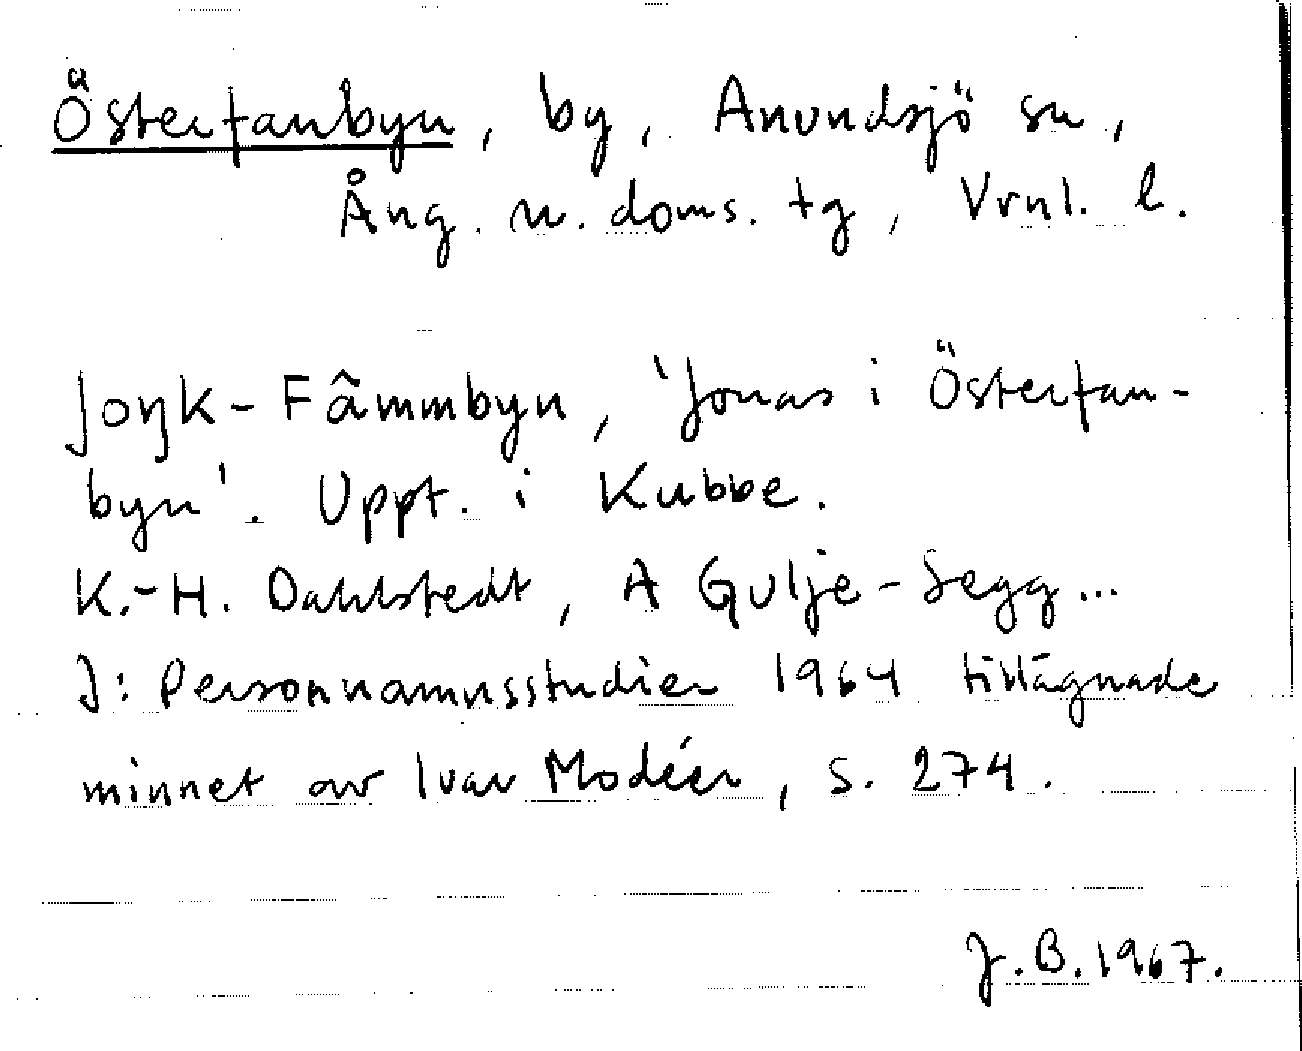 Österfanbyn, by, Anundsjö sn,
Ång. n. doms. tg, Vrnl. l.
Joŋk-Fâmmbyn, 'Jonas i Österfan-
byn'. Uppt. i Kubbe.
K.-H. Dahlstedt, A Gulje-Segg...
I: Personnamnsstudier 1964 tillägnade
minnet av Ivar Modéer, s. 274.
J.B. 1967.